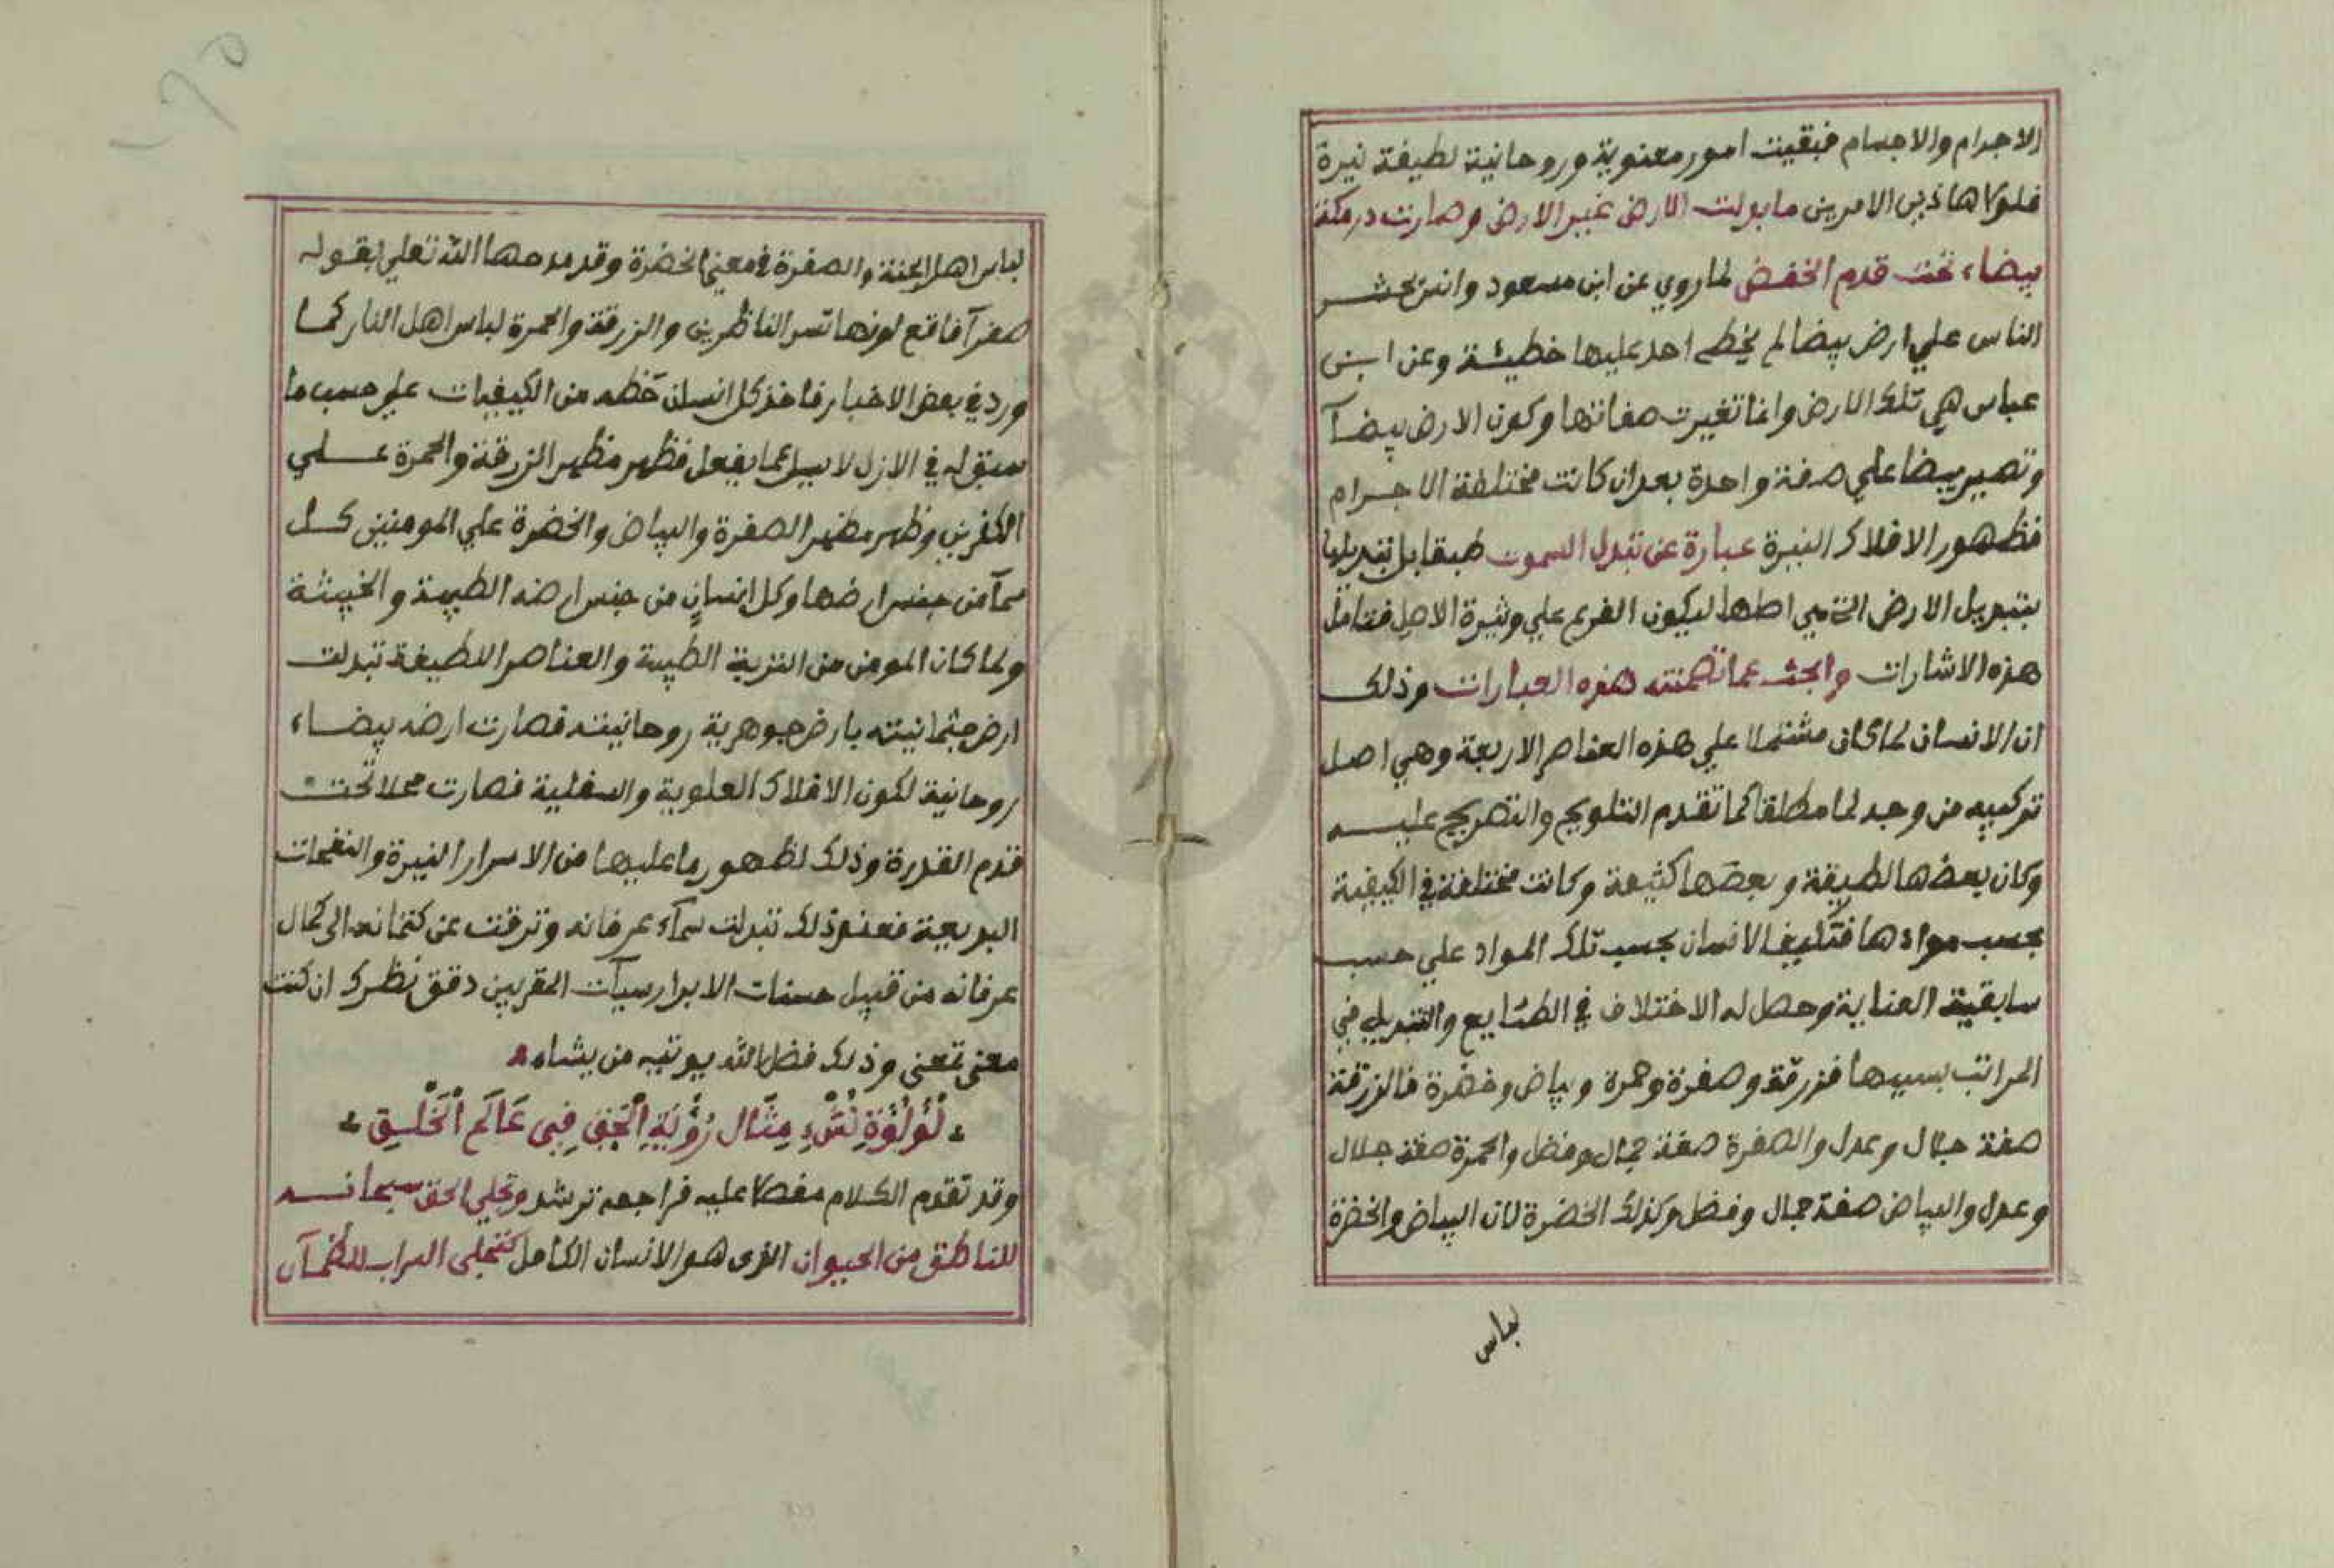 الاجرام والاجسام فبقيت امور معنوية وروحانية لطيفة نيرة
فلولا هاذين الامرين ما بدلت الارض غير الارض وصارت درمكة
بيضاء تحت قدم الخفض لما روي عن ابن مسعود وانس يحشر
الناس علي ارض بيضا لم يخطء احد عليها خطيئة وعن ابن
عباس هي تلك الارض وانما تغيرت صفاتها وكون الارض بيضآ
وتصير بيضا علي صفة واحدة بعد ان كانت مختلفة الاجرام
فظهور الافلاك النيرة عبارة عن تبدل السموت طبقا بل تبديلها
بتبديل الارض التي هي اصلها ليكون الفرع علي وتيرة الاصل فتامل
هذه الاشارات وابحث عما تضمنته هذه العبارات وذلك
ان الانسان لما كان مشتملا علي هذه العناصر الاربعة وهي اصل
تركيبه من وجه لما مطلقا كما تقدم التلويح والتصريح عليه
وكان بعضها لطيفة وبعضها كثيفة وكانت مختلفة في الكيفية
بحسب موادها فتكيف الانسان بحسب تلك المواد علي حسب
سابقية العناية وحصل له الاختلاف في الطبايع والتبديل في
المراتب بسببها فزرقة وصفرة وحمرة وبياض وخضرة فالزرقة
صفة جلال وعدل والصفرة صفة جمال وفضل والحمرة صفة جلال
وعدل والبياض صفة جمال وفضل وكذلك الخضرة لان البياض والخضرة
لباس
لباس اهل الجنة والصفرة في معني الخضرة وقد مدحها الله تعلي بقوله
صفرآ فاقع لونها تسر الناظرين والزرقة والحمرة لباس اهل النار كما
ورد في بعض الاخبار فاخذ كل انسان حظه من الكيفيات علي حسب ما
سبق له في الازل لا يسل عما يفعل فظهر مظهر الزرقة والحمرة علي
الكفرين وظهر مظهر الصفرة والبياض والخضرة علي المومنين كل
سمآ من جنس ارضها وكل انسان من جنس ارضه الطيبة والخبيثة
ولما كان المومن من التربة الطيبة والعناصر اللطيفة تبدلت
ارض جثمانيته بارض جوهرية روحانيته فصارت ارضه بيضاء
روحانية لكون الافلاك العلوية والسفلية فصارت محلا تحت
قدم القدرة وذلك لظهور ما عليها من الاسرار النيرة والنفحات
البديعة فعند ذلك تبدلت سمآء عرفانه وترقت عن كتمانه الى كمال
عرفانه من قبيل حسنات الابرار سيآت المقربين دقق نظرك ان كنت
معنى تمعنى وذلك فضل الله يوتيه من يشاء
لؤلؤة نشء مثال رؤية الحق في عالم الخلق
وقد تقدم الكلام مفصلا عليه فراجعه ترشد وتجلي الحق سبحانه
للناطق من الحيوان الذى هو الانسان الكامل كتجلى السراب للظمآن